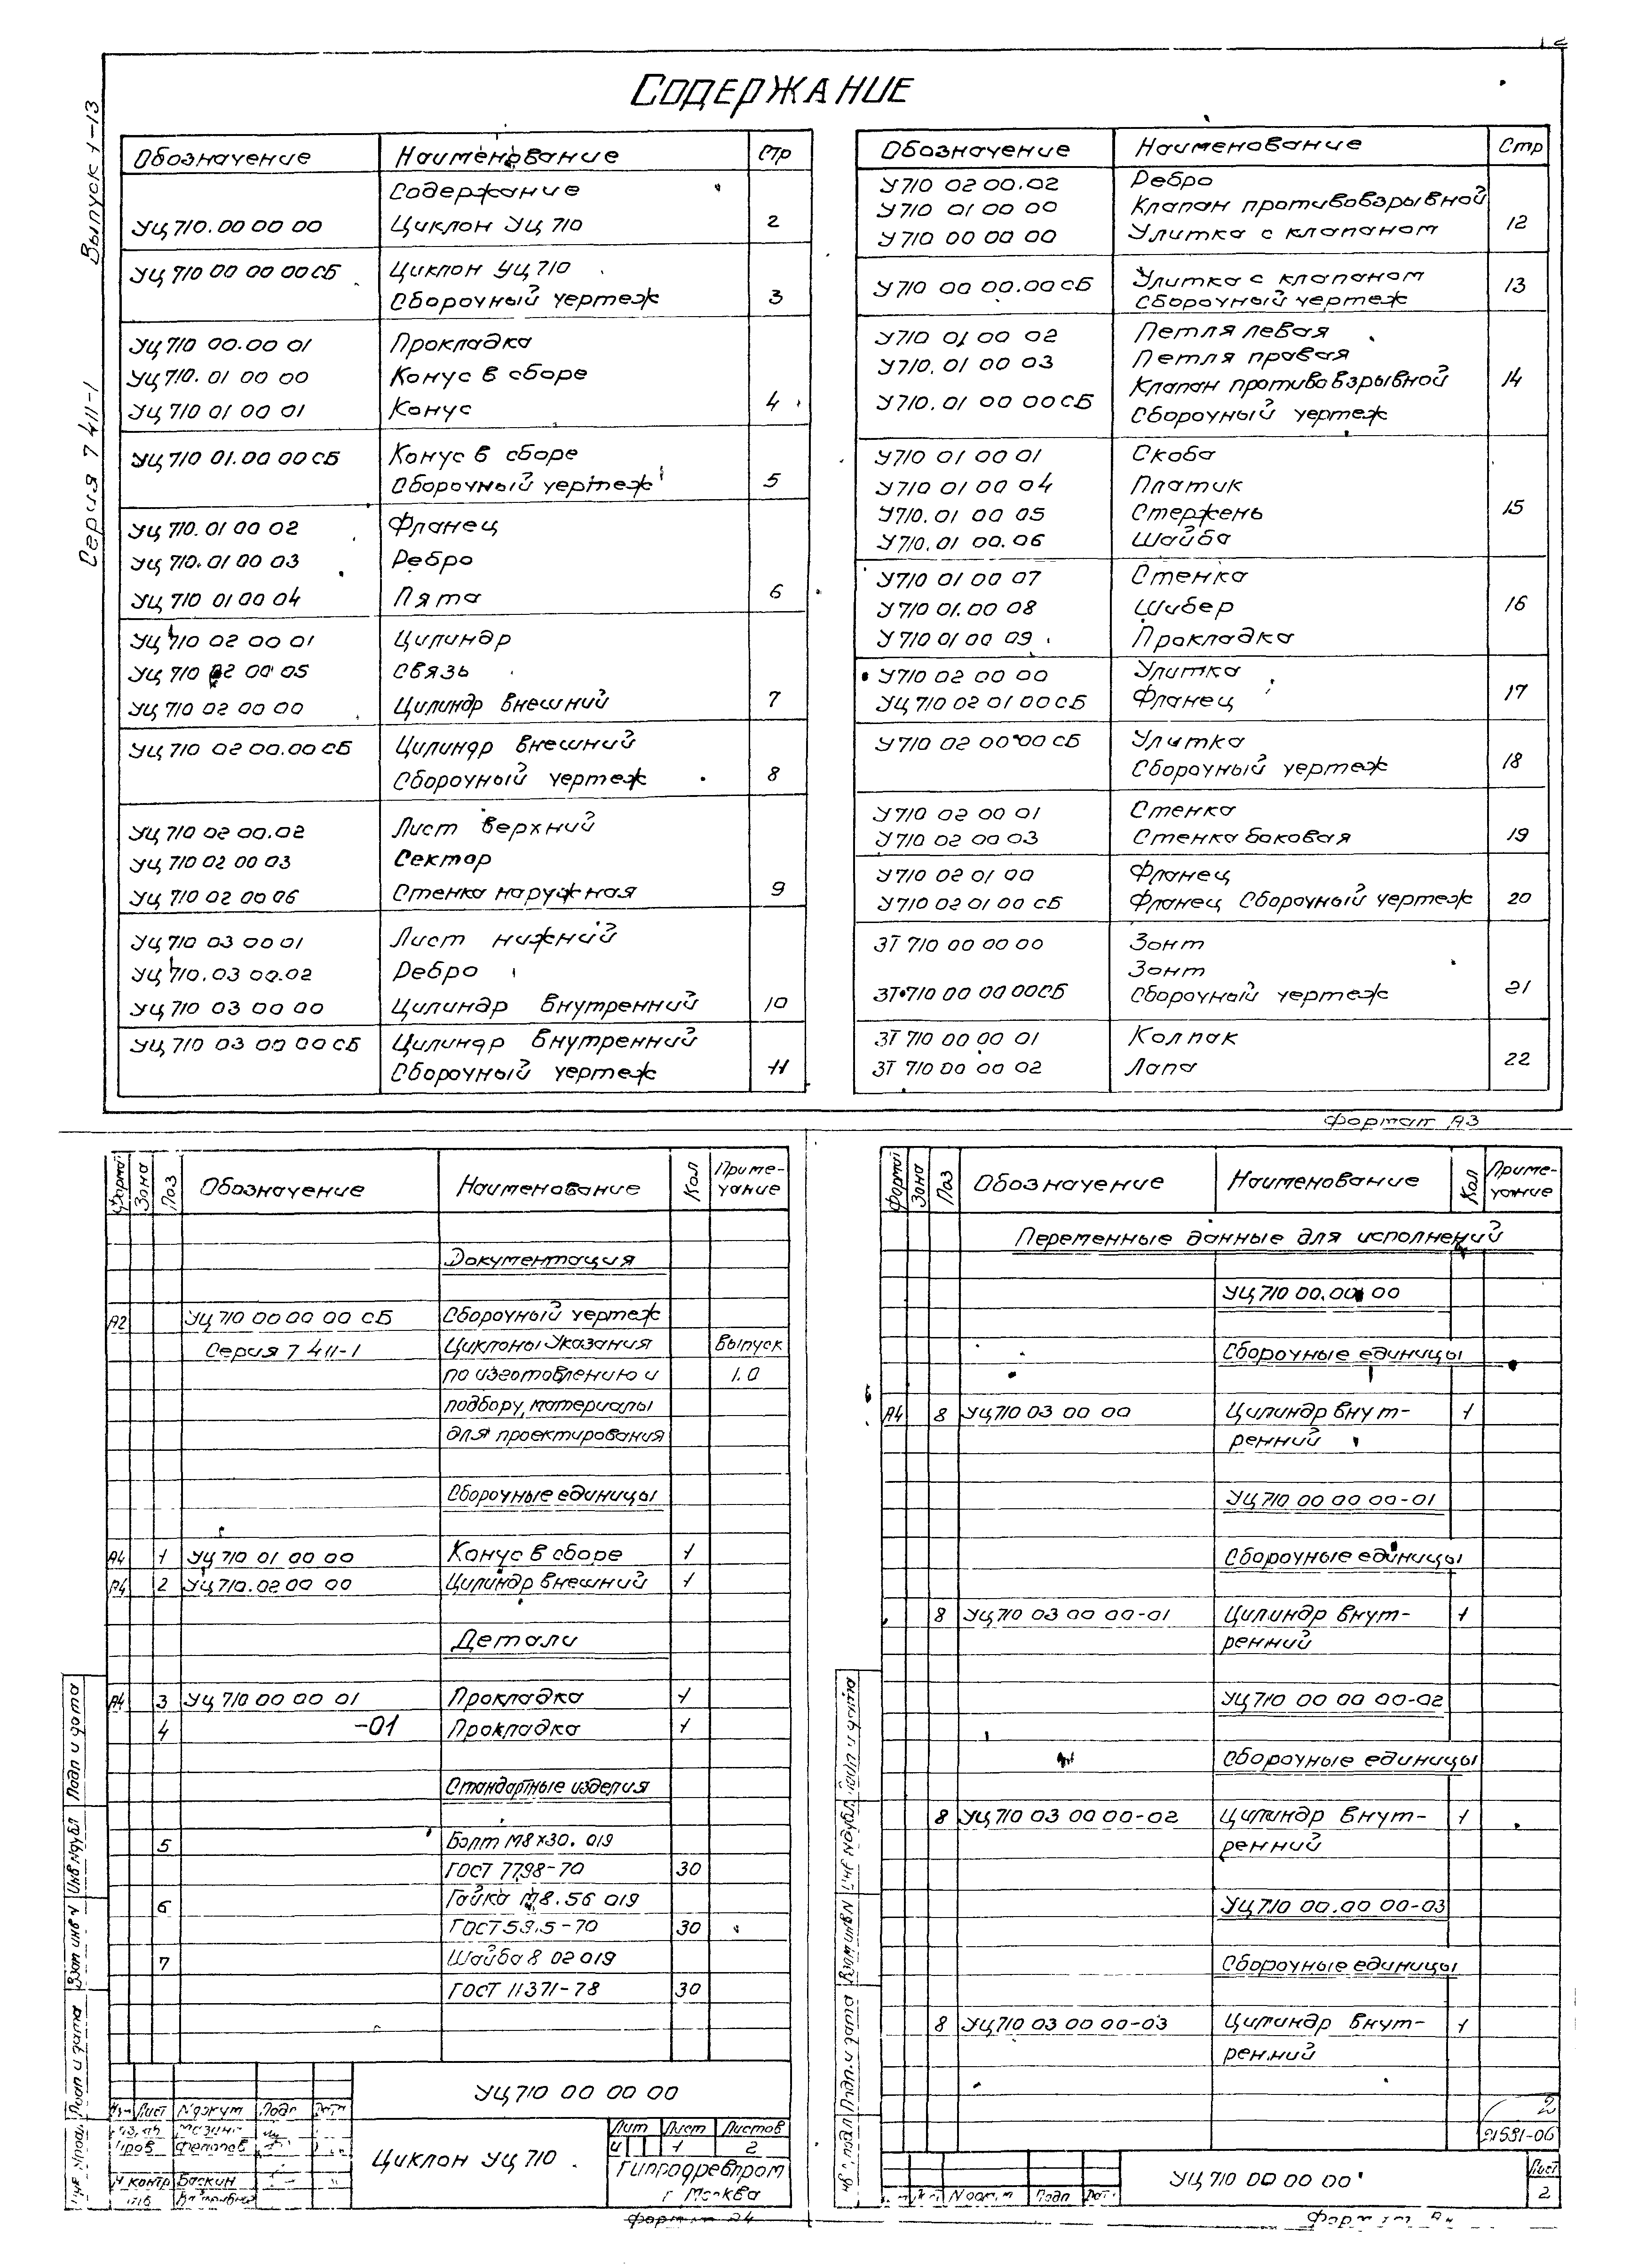 Содержание
Серия 7 411-1 Выпуск 1-13
Обозначение Наименование Стр
Содержание
УЦ 710.00 00 00 Циклон УЦ 710 2
УЦ 710 00 00 00 СБ Циклон УЦ 710
Сборочный чертеж 3
УЦ 710 00.00 01 Прокладка
УЦ 710. 01 00 00 Конус в сборе
УЦ 710 01 00 01 Конус 4
УЦ 710 01.00 00 СБ Конус в сборе
Сборочный чертеж 5
УЦ 710. 01 00 02 Фланец
УЦ 710. 01 00 03 Ребро
УЦ 710 01 00 04 Пята 6
УЦ 710 02 00 01 Цилиндр
УЦ 710 02 00 05 Связь
УЦ 710 02 00 00 Цилиндр внешний 7
УЦ 710 02 00.00 СБ Цилиндр внешний
Сборочный чертеж 8
УЦ 710 02 00.02 Лист верхний
УЦ 710 02 00 03 Сектор
УЦ 710 02 00 06 Стенка наружная 9
УЦ 710 03 00 01 Лист нижний
УЦ 710. 03 00.02 Ребро
УЦ 710 03 00 00 Цилиндр внутренний 10
УЦ 710 03 00 00 СБ Цилиндр внутренний
Сборочный чертеж 11
Обозначение Наименование Стр
У 710 02 00.02 Ребро
У 710 01 00 00 Клапан противовзрывной
У 710 00 00 00 Улитка с клапаном 12
У 710 00 00.00 СБ Улитка с клапаном 13
Сборочный чертеж
У 710 01 00 02 Петля левая
У 710. 01 00 03 Петля правая
Клапан противовзрывной 14
У 710. 01 00 00 СБ Сборочный чертеж
У 710 01 00 01 Скоба
У 710 01 00 04 Платик
У 710. 01 00 05 Стержень 15
У 710. 01 00. 06 Шайба
У 710 01 00 07 Стенка
У 710 01. 00 08 Шибер 16
У 710 01 00 09 Прокладка
У 710 02 00 00 Улитка
УЦ 710 02 01 00 СБ Фланец 17
У 710 02 00 00 СБ Улитка
Сборочный чертеж 18
У 710 02 00 01 Стенка
У 710 02 00 03 Стенка боковая 19
У 710 02 01 00 Фланец
У 710 02 01 00 СБ Фланец Сборочный чертеж 20
ЗТ 710 00 00 00 Зонт
Зонт
ЗТ 710 00 00 00 СБ Сборочный чертеж 21
ЗТ 710 00 00 01 Колпак
ЗТ 710 00 00 02 Лапа 22
Формат А3
Формат Зона Поз Обозначение Наименование Кол Приме-
чание
Документация
А2 УЦ 710 00 00 00 СБ Сборочный чертеж
Серия 7 411-1 Циклоны Указания Выпуск
по изготовлению и 1.0
подбору, материалы
для проектирования
Сборочные единицы
А4 1 УЦ 710 01 00 00 Конус в сборе 1
А4 2 УЦ 710. 02 00 00 Цилиндр внешний 1
Детали
А4 3 УЦ 710 00 00 01 Прокладка 1
4 -01 Прокладка 1
Стандартные изделия
5 Болт М8×30. 019
ГОСТ 7798-70 30
6 Гайка М8. 56 019
ГОСТ 59.5-70 30
7 Шайба 8 02 019
ГОСТ 11371-78 30
УЦ 710 00 00 00
Изм Лист N докум Подп Дата
Циклон УЦ 710
Лит Лист Листов
И 1 2
Н контр Баскин
Гипродревпром
г Москва
Формат А4
Подп и дата
Инв N дубл
Взам инв N
Подп и дата
Формат Зона Поз Обозначение Наименование Кол Приме-
чание
Переменные данные для исполнений
УЦ 710 00.00 00
Сборочные единицы
А4 8 УЦ 710 03 00 00 Цилиндр внут- 1
ренний
УЦ 710 00 00 00-01
Сборочные единицы
8 УЦ 710 03 00 00-01 Цилиндр внут- 1
ренний
УЦ 710 00 00 00-02
Сборочные единицы
8 УЦ 710 03 00 00-02 Цилиндр внут- 1
ренний
УЦ 710 00. 00 00-03
Сборочные единицы
8 УЦ 710 03 00 00-03 Цилиндр внут- 1
ренний
2
21581-06
УЦ 710 00 00 00
Лист
2